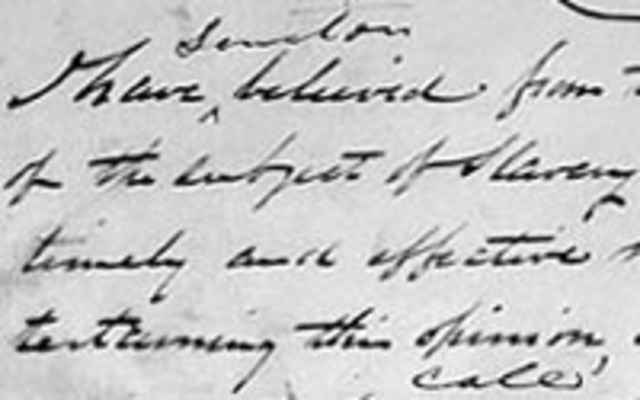 Senators
I have ‸ believed from
of the subject of Slavery
timely and effective
tertaining this opinion